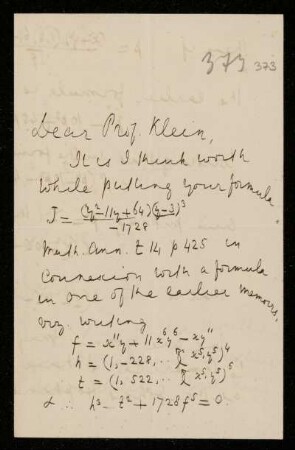 373 373
Dear Prof. Klein,
It is I think worth
while putting your formula
J = (y² - 11y + 64)(y - 3)³
-1728
Math. Ann. t. 14 p 425 in
connexion with a formula
in one of the earlier memoirs,
viz. writing
f = x¹¹y + 11x⁶y⁶ - xy¹¹
h = (1, -228, .. ≬ x⁵, y⁵)⁴
t = (1, 522, .. ≬ x⁵, y⁵)⁶
h³ - t² + 1728f⁵ = 0.